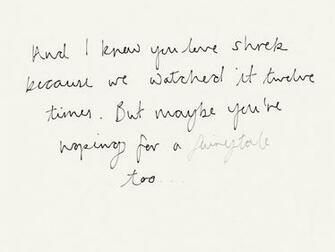 And I know you love shrek
because we watched it twelve
times. But maybe you're
hoping for a fairytale
too...